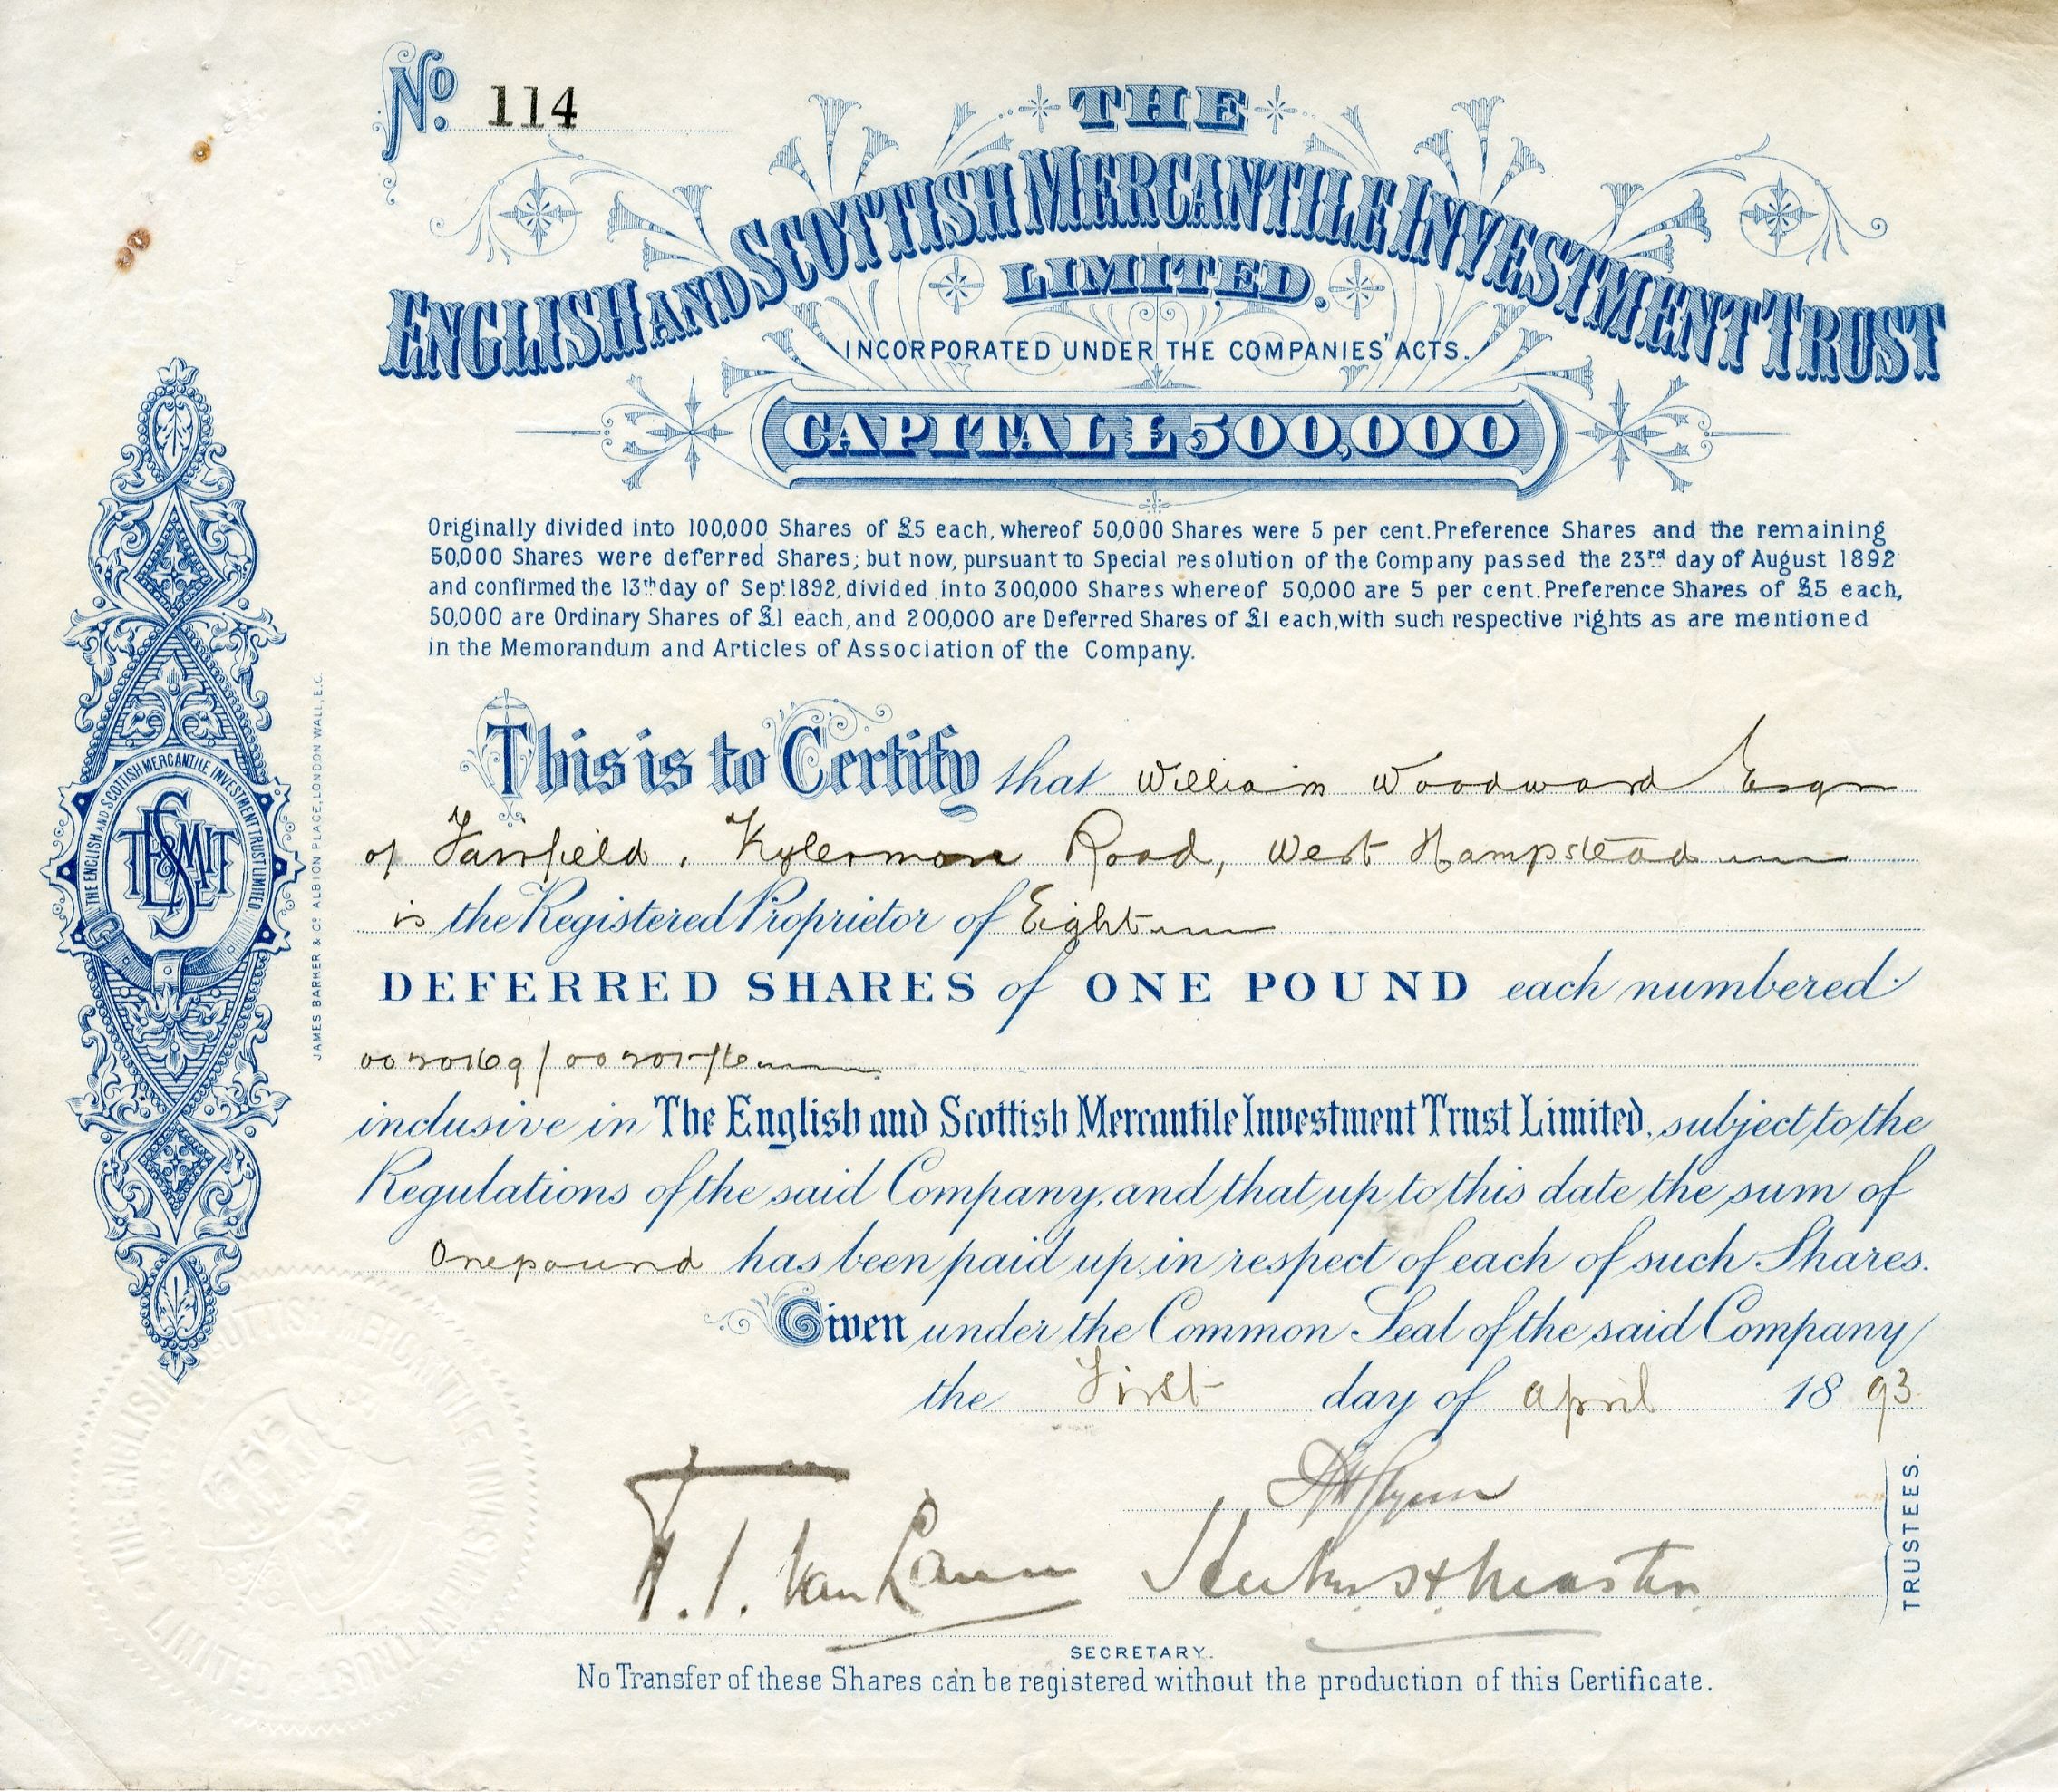 No. 114
THE
ENGLISH AND SCOTTISH MERCANTILE INVESTMENT TRUST
LIMITED.
INCORPORATED UNDER THE COMPANIES' ACTS.
CAPITAL £500,000
Originally divided into 100,000 Shares of £5 each, whereof 50,000 Shares were 5 per cent. Preference Shares and the remaining
50,000 Shares were deferred Shares; but now, pursuant to Special resolution of the Company passed the 23rd day of August 1892
and confirmed the 13th day of Sept. 1892, divided into 300,000 Shares whereof 50,000 are 5 per cent. Preference Shares of £5 each,
50,000 are Ordinary Shares of £1 each, and 200,000 are Deferred Shares of £1 each, with such respective rights as are mentioned
in the Memorandum and Articles of Association of the Company.
This is to Certify that William Woodward Esqr
of Fairfield, Kylemore Road, West Hampstead
is the Registered Proprietor of Eight
DEFERRED SHARES of ONE POUND each numbered
inclusive in The English and Scottish Mercantile Investment Trust Limited, subject to the
Regulations of the said Company, and that up to this date the sum of
One pound has been paid up in respect of each of such Shares.
Given under the Common Seal of the said Company
the First day of April 1893
TRUSTEES.
SECRETARY.
No Transfer of these Shares can be registered without the production of this Certificate.
THE ENGLISH AND SCOTTISH MERCANTILE INVESTMENT TRUST LIMITED
TE&SMIT
JAMES BARKER & Co. ALBION PLACE, LONDON WALL, E.C.
THE ENGLISH SCOTTISH MERCANTILE INVESTMENT TRUST LIMITED